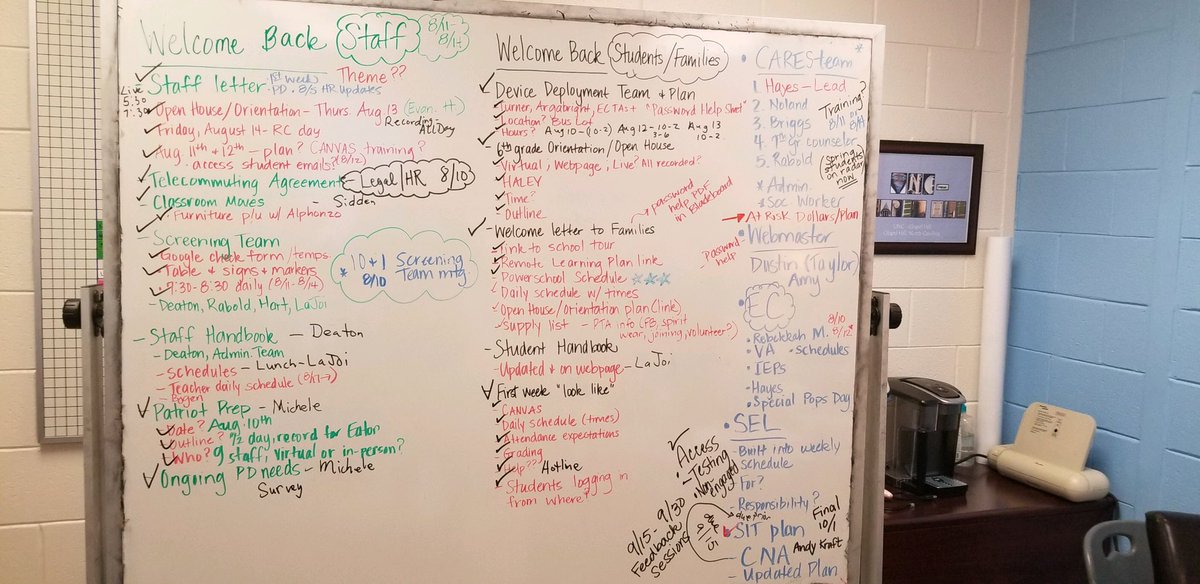 Welcome Back Staff 8/11-
8/14
Staff letter - 1st week
PD. 8/5 HR Updates
Theme??
Live
5:30
7:30
Open House/Orientation - Thurs. Aug 13 (Even. #)
Recording-
All Day
Friday, August 14 - RC day
Aug. 11th + 12th - plan? CANVAS training?
- access student emails? (8/12)
Telecommuting Agreement
Legal/HR 8/10
Classroom Moves - Sidden
Furniture p/u w/ Alphonzo
- Screening Team
Google check form/temps.
Table + signs + markers
7:30-8:30 daily (8/11-8/14)
- Deaton, Rabold, Hart, LaJoi
* 10+1 Screening
8/10 Team mtg
- Staff Handbook - Deaton
- Deaton, Admin. Team
- schedules - Lunch - LaJoi
- Teacher daily schedule (8/17-?)
- Eogen
Patriot Prep - Michele
Date? Aug. 10th
Outline? 1/2 day, record for Eaton
Who? 9 staff, virtual or in-person?
Ongoing PD needs - Michele
Survey
Welcome Back Students/Families
Device Deployment Team + Plan
Turner, Aragbright, EC TAs + "Password Help Sheet"
Location? Bus Lot
Hours? Aug 10-(10-2) Aug 12-10-2
3-6
Aug 13
10-2
6th grade Orientation/Open House
Virtual, Webpage, Live? All recorded?
HALEY
Time?
Outline
- Welcome letter to Families
password
help PDF
in Blackboard
Link to school tour
Remote Learning Plan link
Powerschool Schedule ☆☆☆
- Password
help
Daily schedule w/ times
- Open House/Orientation plan (link)
- supply list - PTA info (FB, spirit
wear, joining, volunteer?)
- Student Handbook
- Updated + on webpage - LaJoi
First week "look like"
CANVAS
Daily schedule (times)
Attendance expectations
Grading
Help?? Hotline
Students logging in
from where?
• CARES team *
1. Hayes - Lead
2. Noland
3. Briggs
4. 7th gr counselor
5. Rabold
Training?
8/11 or
8/19
(Spring
students
on radar
now)
* Admin.
* Soc Worker
At Risk Dollars/Plan
- Webmaster
Dustin (Taylor)
Amy
• EC
• Rebekkah M. 8/10
8/12*
• VA • schedules
• IEPs
- Hayes
• Special Pops Day
• SEL
- Built into weekly
schedule
- For?
- Responsibility?
Access
- Testing
• Non-
Engaged
9/15-9/30
Feedback
Sessions
9/15
SIT plan
Final
10/1
CNA Andy Kraft
- Updated Plan
UNC